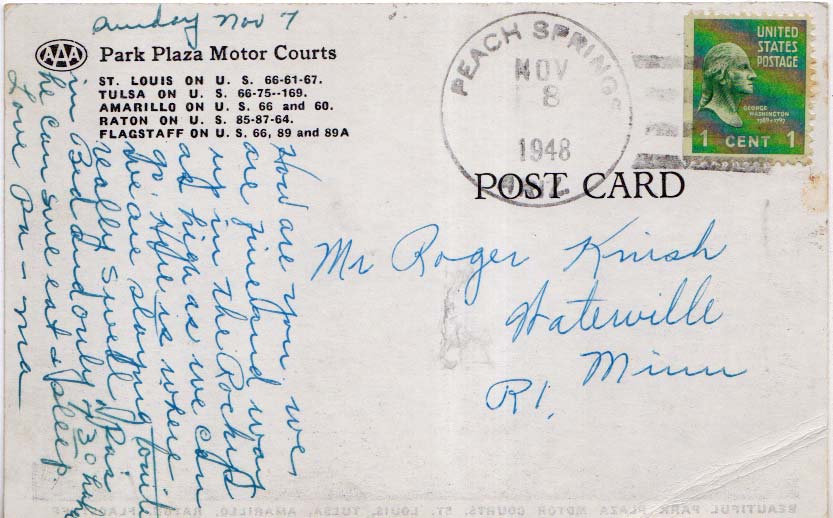 Sunday Nov 7
AAA
Park Plaza Motor Courts
ST. LOUIS ON U. S. 66-61-67.
TULSA ON U. S. 66-75--169.
AMARILLO ON U. S. 66 and 60.
RATON ON U. S. 85-87-64.
FLAGSTAFF ON U. S. 66, 89 and 89A
How are you we
are fine and way
up in the Rockies
as high as we can
go Here is where
we are staying tonite
really swell, Pa is
in Bed and only 30 here
he can sure eat & sleep.
Love Pa - Ma
PEACH SPRINGS
NOV
8
1948
ARIZ.
UNITED
STATES
POSTAGE
GEORGE
WASHINGTON
1789-1797
1 CENT 1
POST CARD
Mr Roger Knish
Waterville
Minn
R1,
BEAUTIFUL PARK PLAZA MOTOR COURTS, ST. LOUIS, TULSA, AMARILLO, RATON, FLAGSTAFF